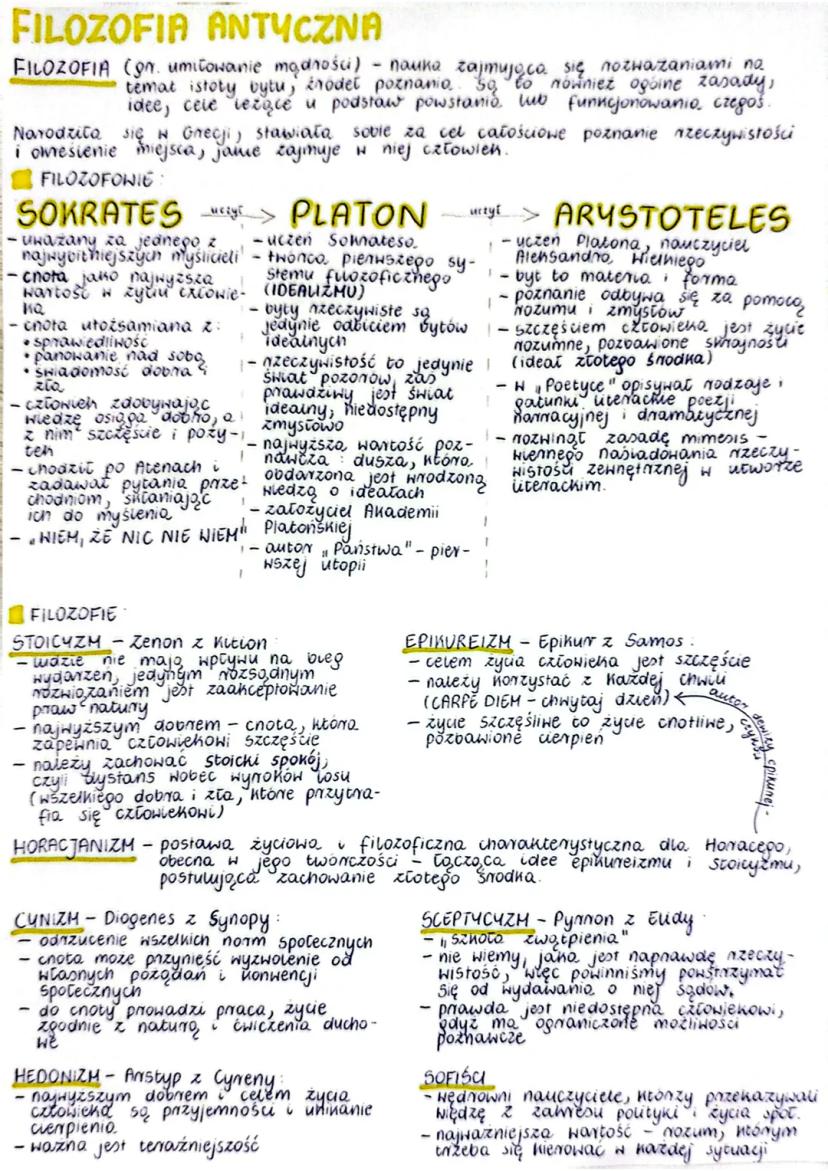 FILOZOFIA ANTYCZNA
FILOZOFIA (gr. umiłowanie mądrości) – nauka zajmująca się rozważaniami na
temat istoty bytu, źródeł poznania. Są to również ogólne zasady,
idee, cele leżące u podstaw powstania lub funkcjonowania czegoś.
Narodziła się w Grecji, stawiała sobie za cel całościowe poznanie rzeczywistości
i określenie miejsca, jakie zajmuje w niej człowiek.
FILOZOFOWIE:
SOKRATES —uczył—> PLATON —uczył—> ARYSTOTELES
– uważany za jednego z
najwybitniejszych myślicieli
– cnota jako najwyższa
wartość w życiu człowie-
ka
– cnota utożsamiana z:
• sprawiedliwość
• panowanie nad sobą
• świadomość dobra i
zła
– człowiek zdobywając
wiedzę osiąga dobro, a
z nim szczęście i poży-
tek
– chodził po Atenach i
zadawał pytania prze-
chodniom, skłaniając
ich do myślenia
– „WIEM, ŻE NIC NIE WIEM"
– uczeń Sokratesa
– twórca pierwszego sy-
stemu filozoficznego
(IDEALIZMU)
– byty rzeczywiste są
jedynie odbiciem bytów
idealnych
– rzeczywistość to jedynie
świat pozorów, zaś
prawdziwy jest świat
idealny, niedostępny
zmysłowo
– najwyższa wartość poz-
nawcza: dusza, która
obdarzona jest wrodzoną
wiedzą o ideałach
– założyciel Akademii
Platońskiej
– autor „Państwa" – pier-
wszej utopii
– uczeń Platona, nauczyciel
Aleksandra Wielkiego
– byt to materia i forma
– poznanie odbywa się za pomocą
rozumu i zmysłów
– szczęściem człowieka jest życie
rozumne, pozbawione skrajności
(ideał złotego środka)
– w „Poetyce" opisywał rodzaje i
gatunki literackie poezji
narracyjnej i dramatycznej
– rozwinął zasadę mimesis –
wiernego naśladowania rzeczy-
wistości zewnętrznej w utworze
literackim.
FILOZOFIE:
STOICYZM – Zenon z Kition:
– ludzie nie mają wpływu na bieg
wydarzeń, jedynym rozsądnym
rozwiązaniem jest zaakceptowanie
praw natury
– najwyższym dobrem – cnota, która
zapewnia człowiekowi szczęście
– należy zachować stoicki spokój,
czyli dystans wobec wyroków losu
(wszelkiego dobra i zła, które przytra-
fia się człowiekowi)
EPIKUREIZM – Epikur z Samos:
– celem życia człowieka jest szczęście
– należy korzystać z każdej chwili
(CARPE DIEM – chwytaj dzień)
– życie szczęśliwe to życie cnotliwe,
pozbawione cierpień
autor dewizy epikurej-
czyków
HORACJANIZM – postawa życiowa i filozoficzna charakterystyczna dla Horacego,
obecna w jego twórczości – łącząca idee epikureizmu i stoicyzmu,
postulująca zachowanie złotego środka.
CYNIZM – Diogenes z Synopy:
– odrzucenie wszelkich norm społecznych
– cnota może przynieść wyzwolenie od
własnych pożądań i konwencji
społecznych
– do cnoty prowadzi praca, życie
zgodnie z naturą i ćwiczenia ducho-
we
SCEPTYCYZM – Pyrron z Elidy
– „szkoła zwątpienia"
– nie wiemy, jaka jest naprawdę rzeczy-
wistość, więc powinniśmy powstrzymać
się od wydawania o niej sądów.
– prawda jest niedostępna człowiekowi,
gdyż ma ograniczone możliwości
poznawcze
HEDONIZM – Arystyp z Cyreny:
– najwyższym dobrem i celem życia
człowieka są przyjemności i unikanie
cierpienia
– ważna jest teraźniejszość
SOFIŚCI
– wędrowni nauczyciele, którzy przekazywali
wiedzę z zakresu polityki i życia społ.
– najważniejsza wartość – rozum, którym
trzeba się kierować w każdej sytuacji